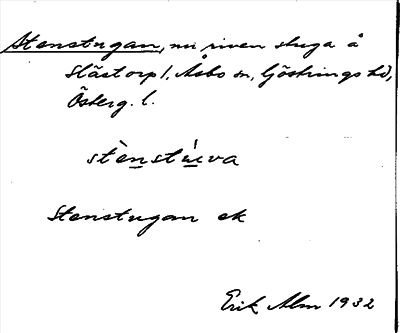 Stenstugan, nu riven stuga å
Slästorp /, Åsbo sn, Göstrings hd,
Österg. l.
stènstúva
Stenstugan ek
Erik Alm 1932